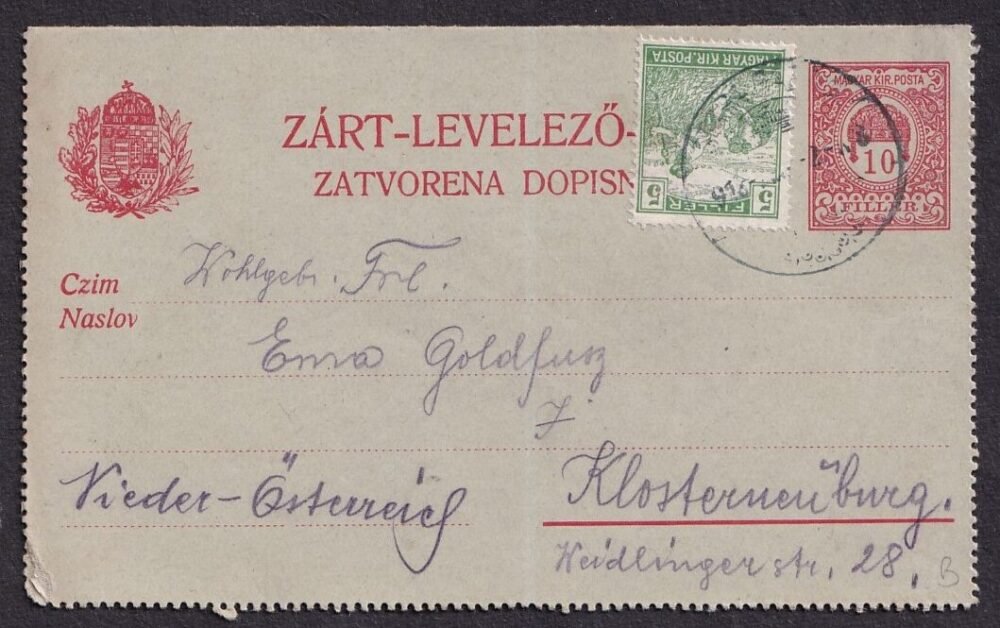 MAGYAR KIR. POSTA
5 FILLÉR 5
MAGYAR KIR. POSTA
10
FILLÉR
ZÁRT-LEVELEZŐ-
ZATVORENA DOPISN
916
Czim
Naslov
Wohlgeb. Frl.
Goldfusz
Nieder-Österreich
Klosterneuburg.
Weidlingerstr. 28.
B